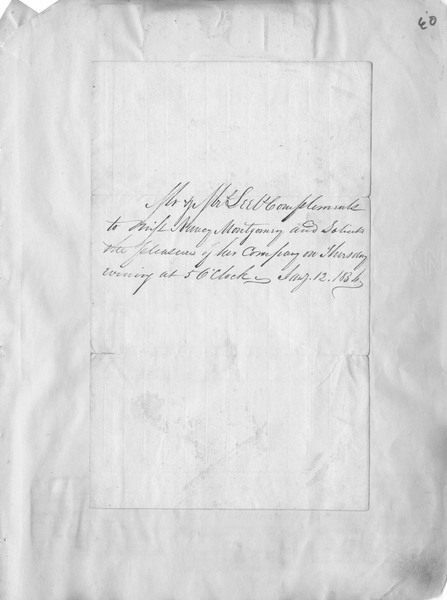 Mr & Mrs Lee's Complements
to Miss Nancy Montgomery and Solicits
the pleasure of her Company on Thursday
evening at 5 O'Clock Jany. 12. 183
03